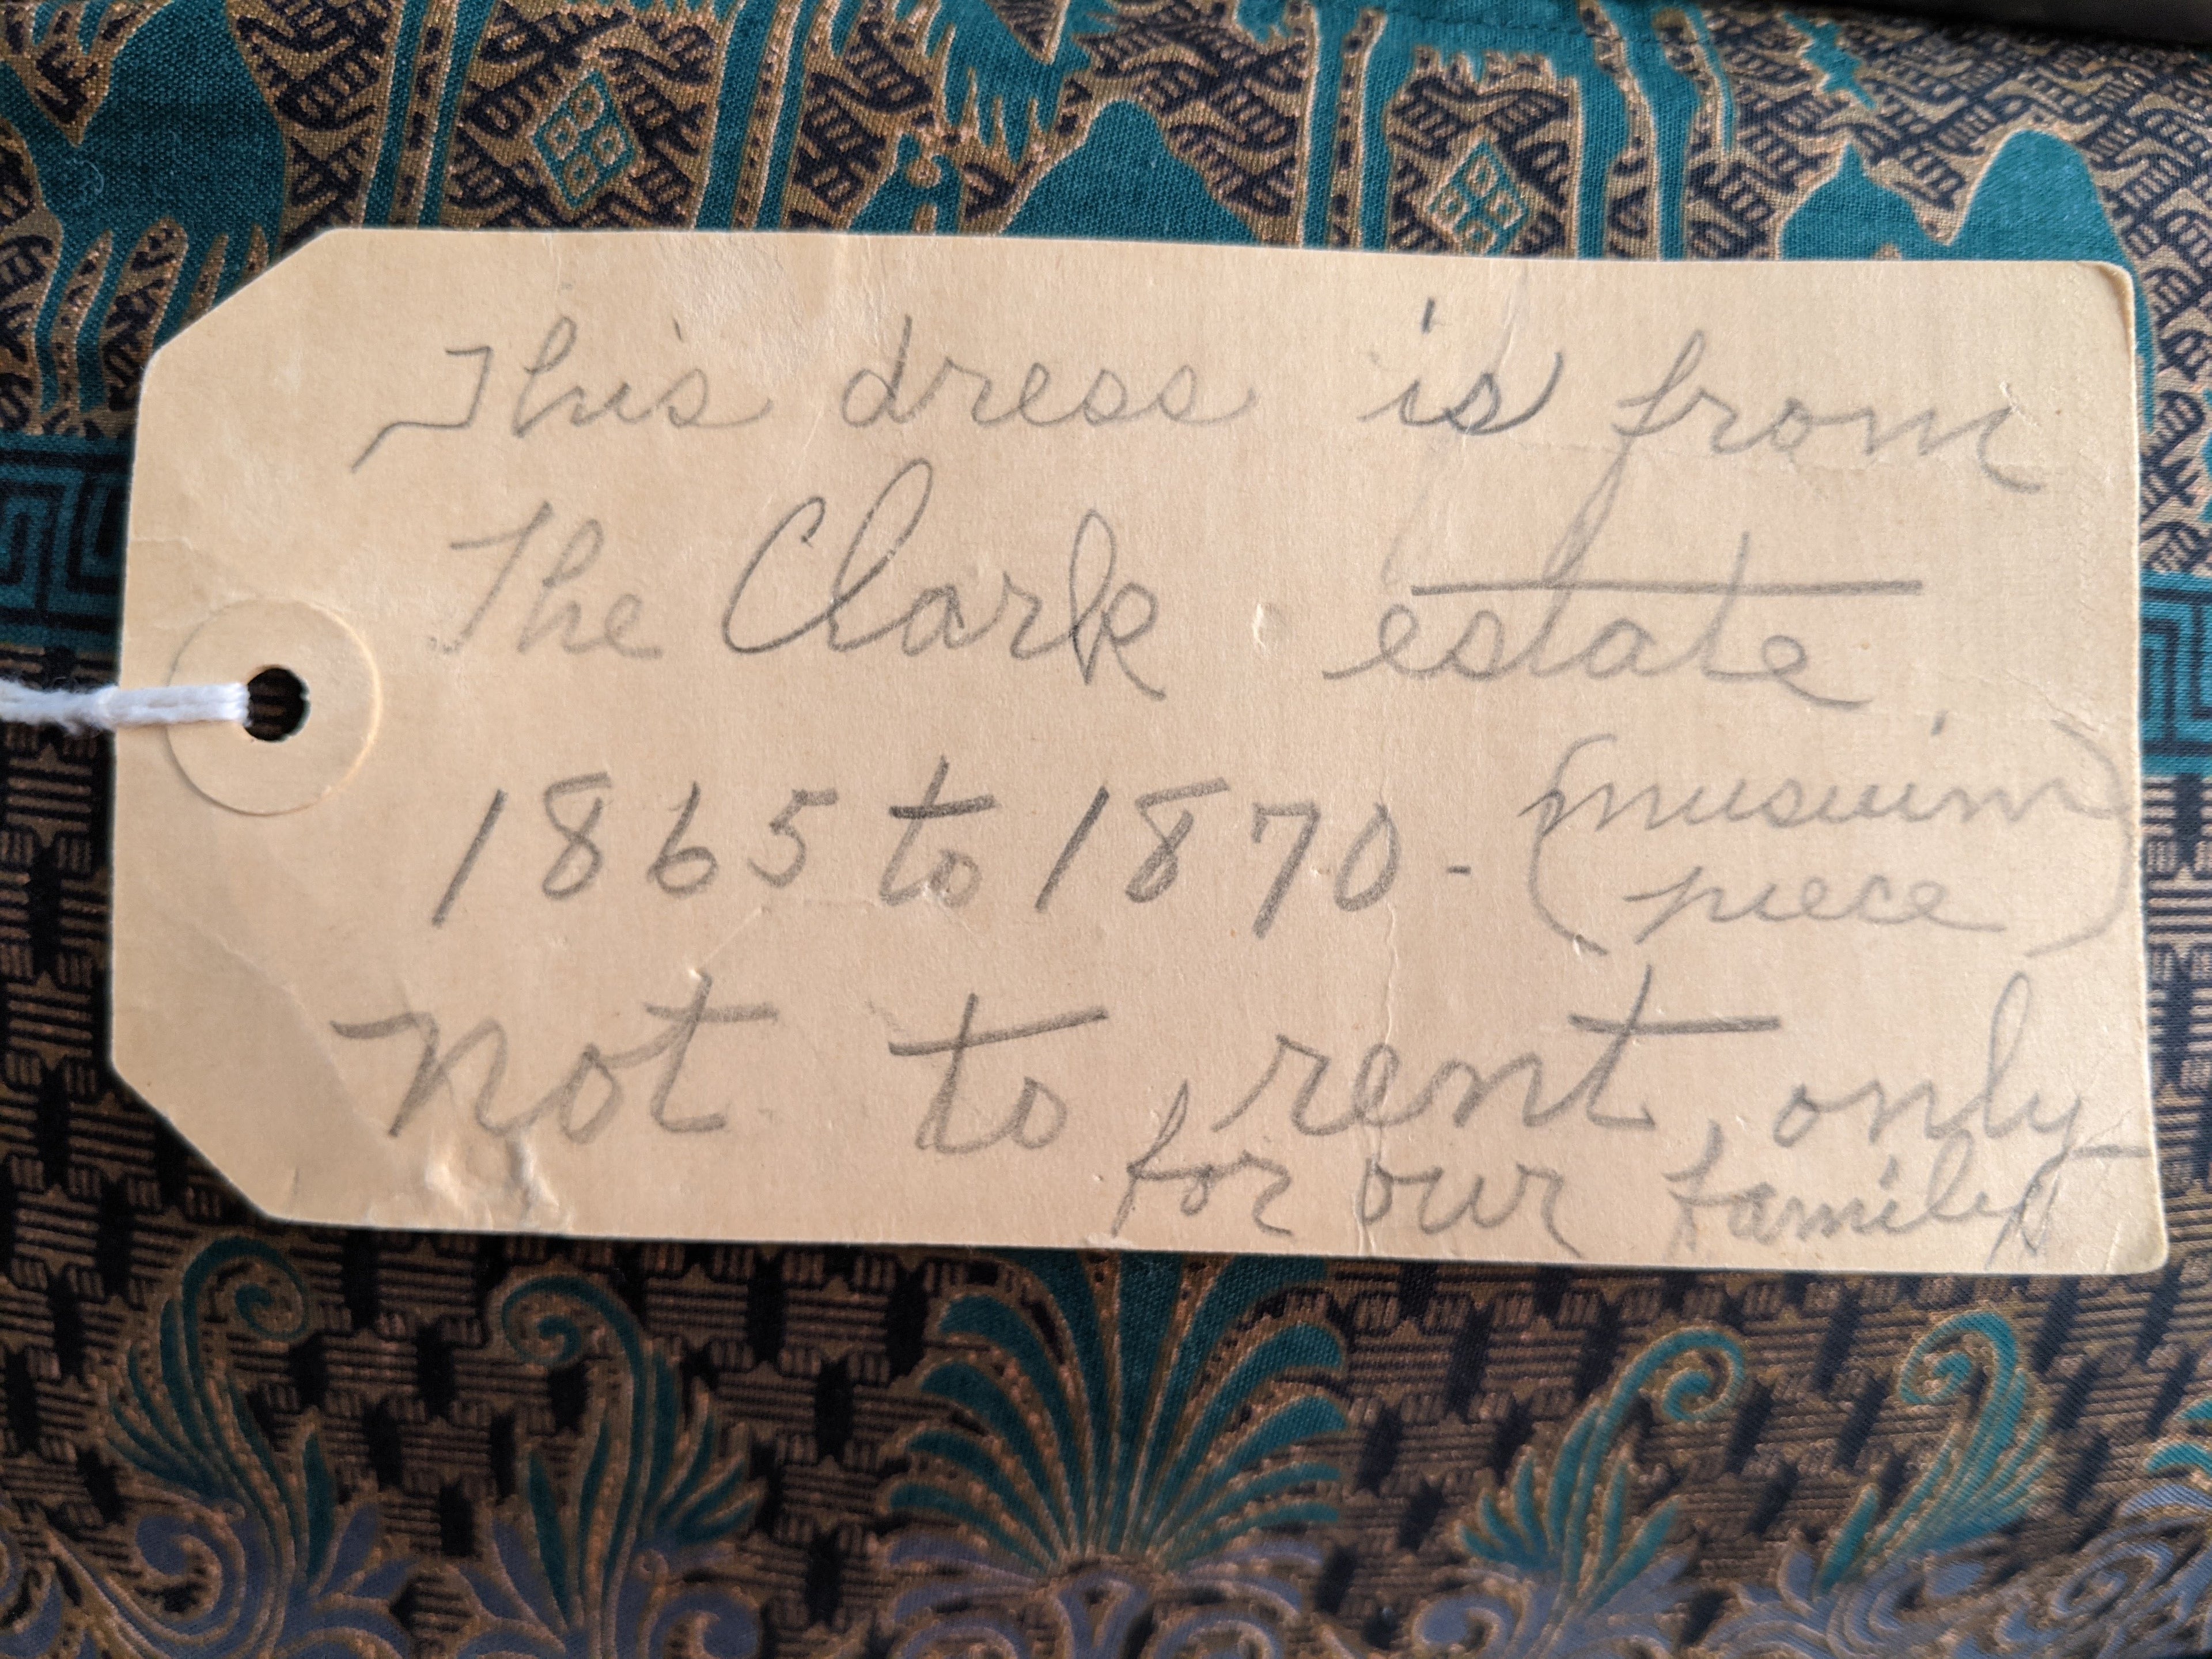 This dress is from
The Clark estate
1865 to 1870 - (musuim
piece)
Not to rent, only
for our family